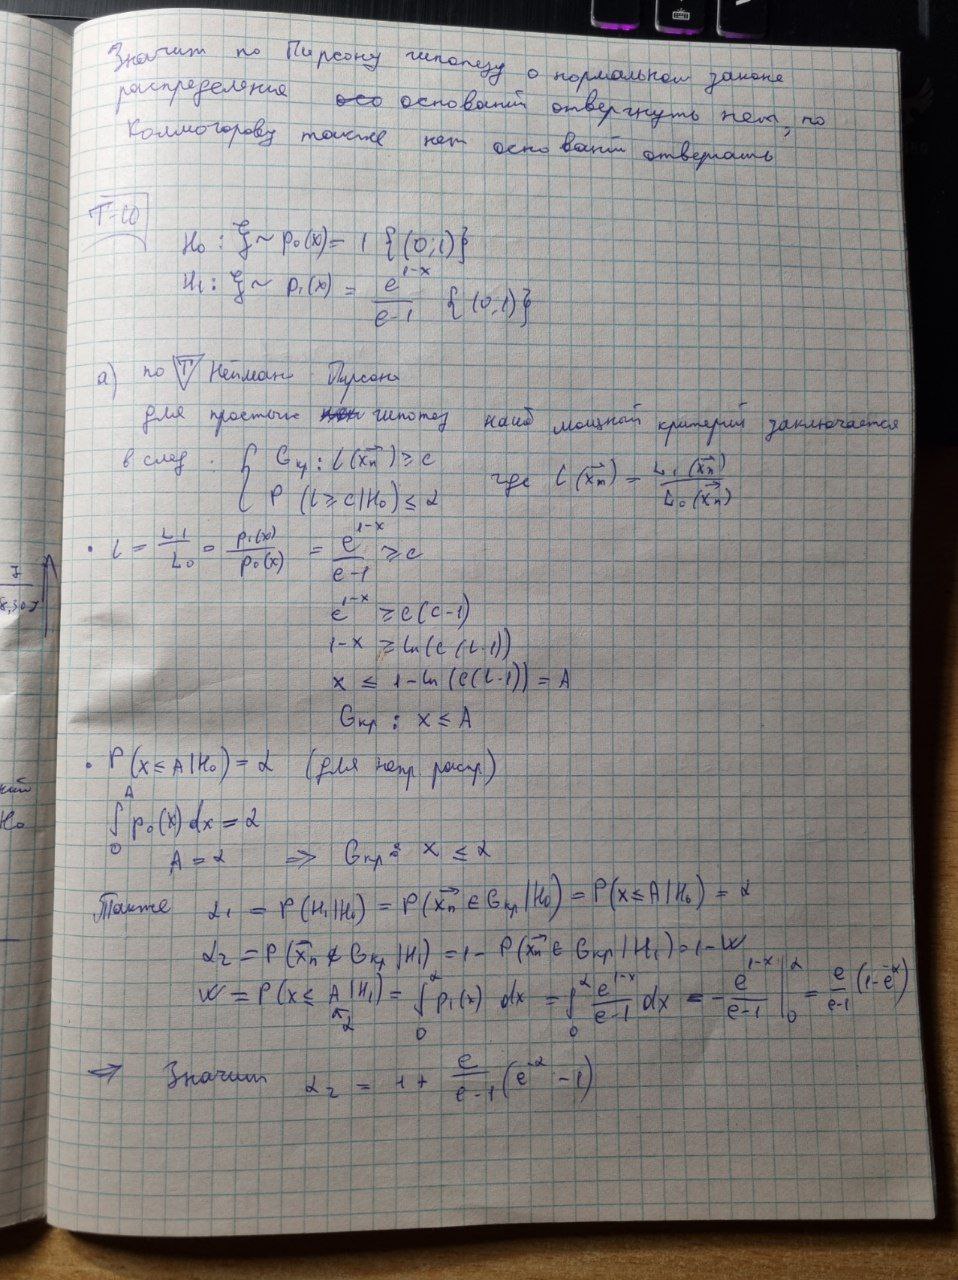 Значит по Пирсону гипотезу о нормальном законе
распределения осо оснований отвергнуть нет, по
Колмогорову также нет оснований отвергать
T-10
H₀ : ξ ~ p₀(x) = 1 {(0;1)}
H₁ : ξ ~ p₁(x) = e^(1-x) / (e-1) {(0,1)}
а) по T Неймана Пирсона
для простых гипотез наиб мощный критерий заключается
в след : { Gкр : l(x⃗n) ≥ c где l(x⃗n) = L₁(x⃗n) / L₀(x⃗n)
P (l ≥ c | H₀) ≤ α
• l = L₁ / L₀ = p₁(x) / p₀(x) = e^(1-x) / (e-1) ≥ c
e^(1-x) ≥ c(e-1)
1-x ≥ ln(c(e-1))
x ≤ 1 - ln(c(e-1)) = A
Gкр : x ≤ A
• P(x ≤ A | H₀) = α (для непр распр)
∫₀^A p₀(x) dx = α
A = α ⇒ Gкр : x ≤ α
Также α₁ = P(H₁|H₀) = P(x⃗n ∈ Gкр | H₀) = P(x ≤ A | H₀) = α
α₂ = P(x⃗n ∉ Gкр | H₁) = 1 - P(x⃗n ∈ Gкр | H₁) = 1 - W
W = P(x ≤ A | H₁) = ∫₀^α p₁(x) dx = ∫₀^α e^(1-x) / (e-1) dx = - e^(1-x) / (e-1) |₀^α = e / (e-1) (1 - e^(-α))
α
⇒ Значит α₂ = 1 + e / (e-1) (e^(-α) - 1)
H₀